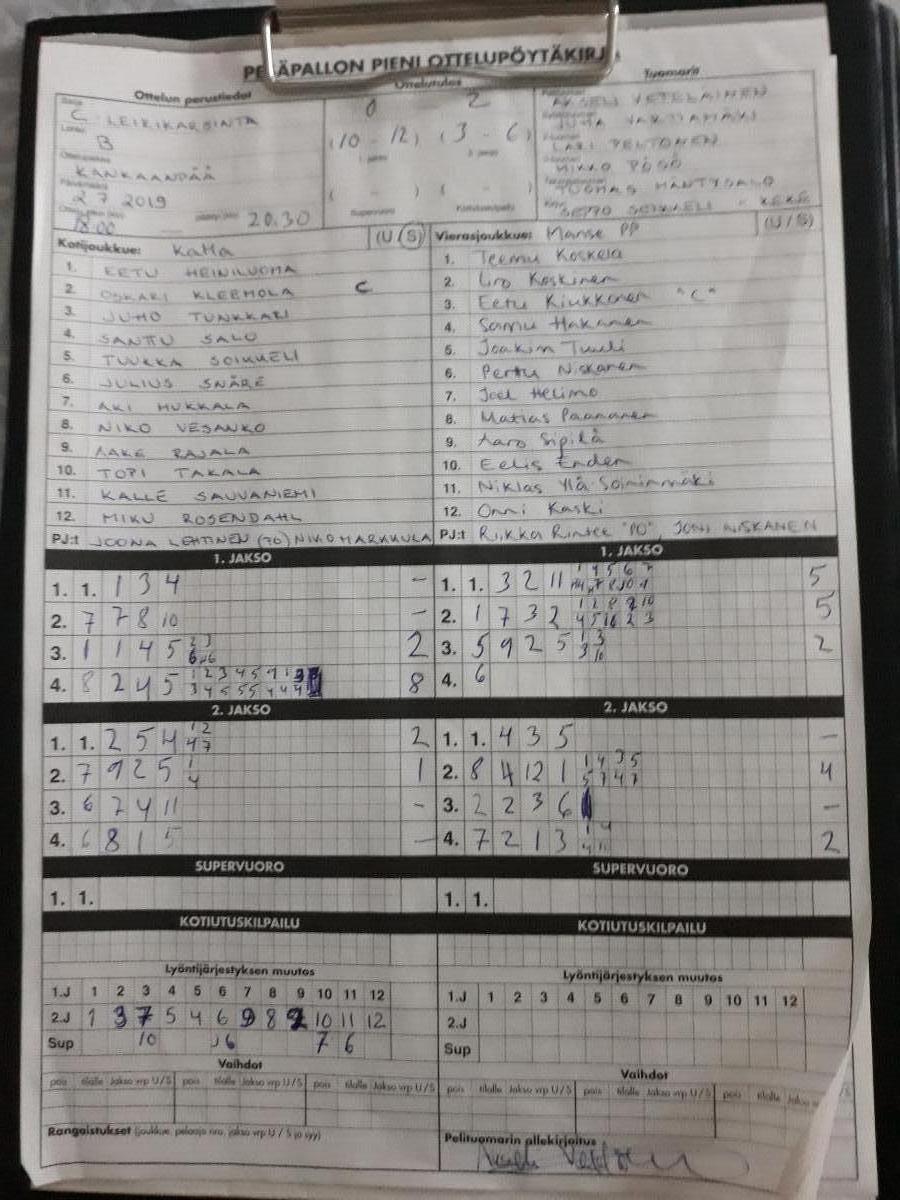 PESÄPALLON PIENI OTTELUPÖYTÄKIRJA
Ottelun perustiedot
Ottelutulos
Tuomarit
C LEIRIKARSINTA
B
KANKAANPÄÄ
2 7 2019
18.00 20.30
0 2
(10 - 12) (3 - 6)
( - ) ( - )
Supervuoro Kotiutuskilpailu
AKSELI VETELAINEN
JUHA
LARI PELTONEN
MIKKO PÖSÖ
TUOMAS MÄNTYSALO
SEPPO SEIKKELI - KEKE
Kotijoukkue: KaMa (U/S)
1. EETU HEINILUOMA
2. OSKARI KLEEMOLA C
3. JUHO TUNKKARI
4. SANTTU SALO
5. TUUKKA SOIKKELI
6. JULIUS SNÄRE
7. AKI HUKKALA
8. NIKO VESANKO
9. AAKE RAJALA
10. TOPI TAKALA
11. KALLE SAUVANIEMI
12. MIKU ROSENDAHL
PJ:t JOONA LEHTINEN (76) NIKO MARKKULA
Vierasjoukkue: Manse PP (U/S)
1. Teemu Koskela
2. Liro Koskinen
3. Eetu Kiukkonen "C"
4. Samu Hakanen
5. Joakim Tuuli
6. Perttu Niskanen
7. Joel Helimo
8. Matias Paananen
9. Aaro Sipilä
10. Eelis Enden
11. Niklas Ylä-Soininmäki
12. Onni Kaski
PJ:t Riikka Rintee "PO", JONI NISKANEN
1. JAKSO
1. 1. 1 3 4 –
2. 7 7 8 10 –
3. 1 1 4 5 2
4. 8 2 4 5 8
1. JAKSO
1. 1. 3 2 11 5
2. 1 7 3 2 5
3. 5 9 2 5 2
4. 6
2. JAKSO
1. 1. 2 5 4 2
2. 7 9 2 5 1
3. 6 7 4 11 –
4. 6 8 1 5 –
2. JAKSO
1. 1. 4 3 5 –
2. 8 4 12 1 4
3. 2 2 3 6 –
4. 7 2 1 3 2
SUPERVUORO
1. 1.
SUPERVUORO
1. 1.
KOTIUTUSKILPAILU
KOTIUTUSKILPAILU
Lyöntijärjestyksen muutos
1.J 1 2 3 4 5 6 7 8 9 10 11 12
2.J 1 3 7 5 4 6 9 8 2 10 11 12
Sup 10 6 7 6
Lyöntijärjestyksen muutos
1.J 1 2 3 4 5 6 7 8 9 10 11 12
2.J
Sup
Vaihdot
pois tilalle Jakso vrp U/S pois tilalle Jakso vrp U/S pois tilalle Jakso vrp U/S
Vaihdot
pois tilalle Jakso vrp U/S pois tilalle Jakso vrp U/S pois tilalle Jakso vrp
Rangaistukset (joukkue, pelaaja nro, jakso vrp U / S ja syy)
Pelituomarin allekirjoitus